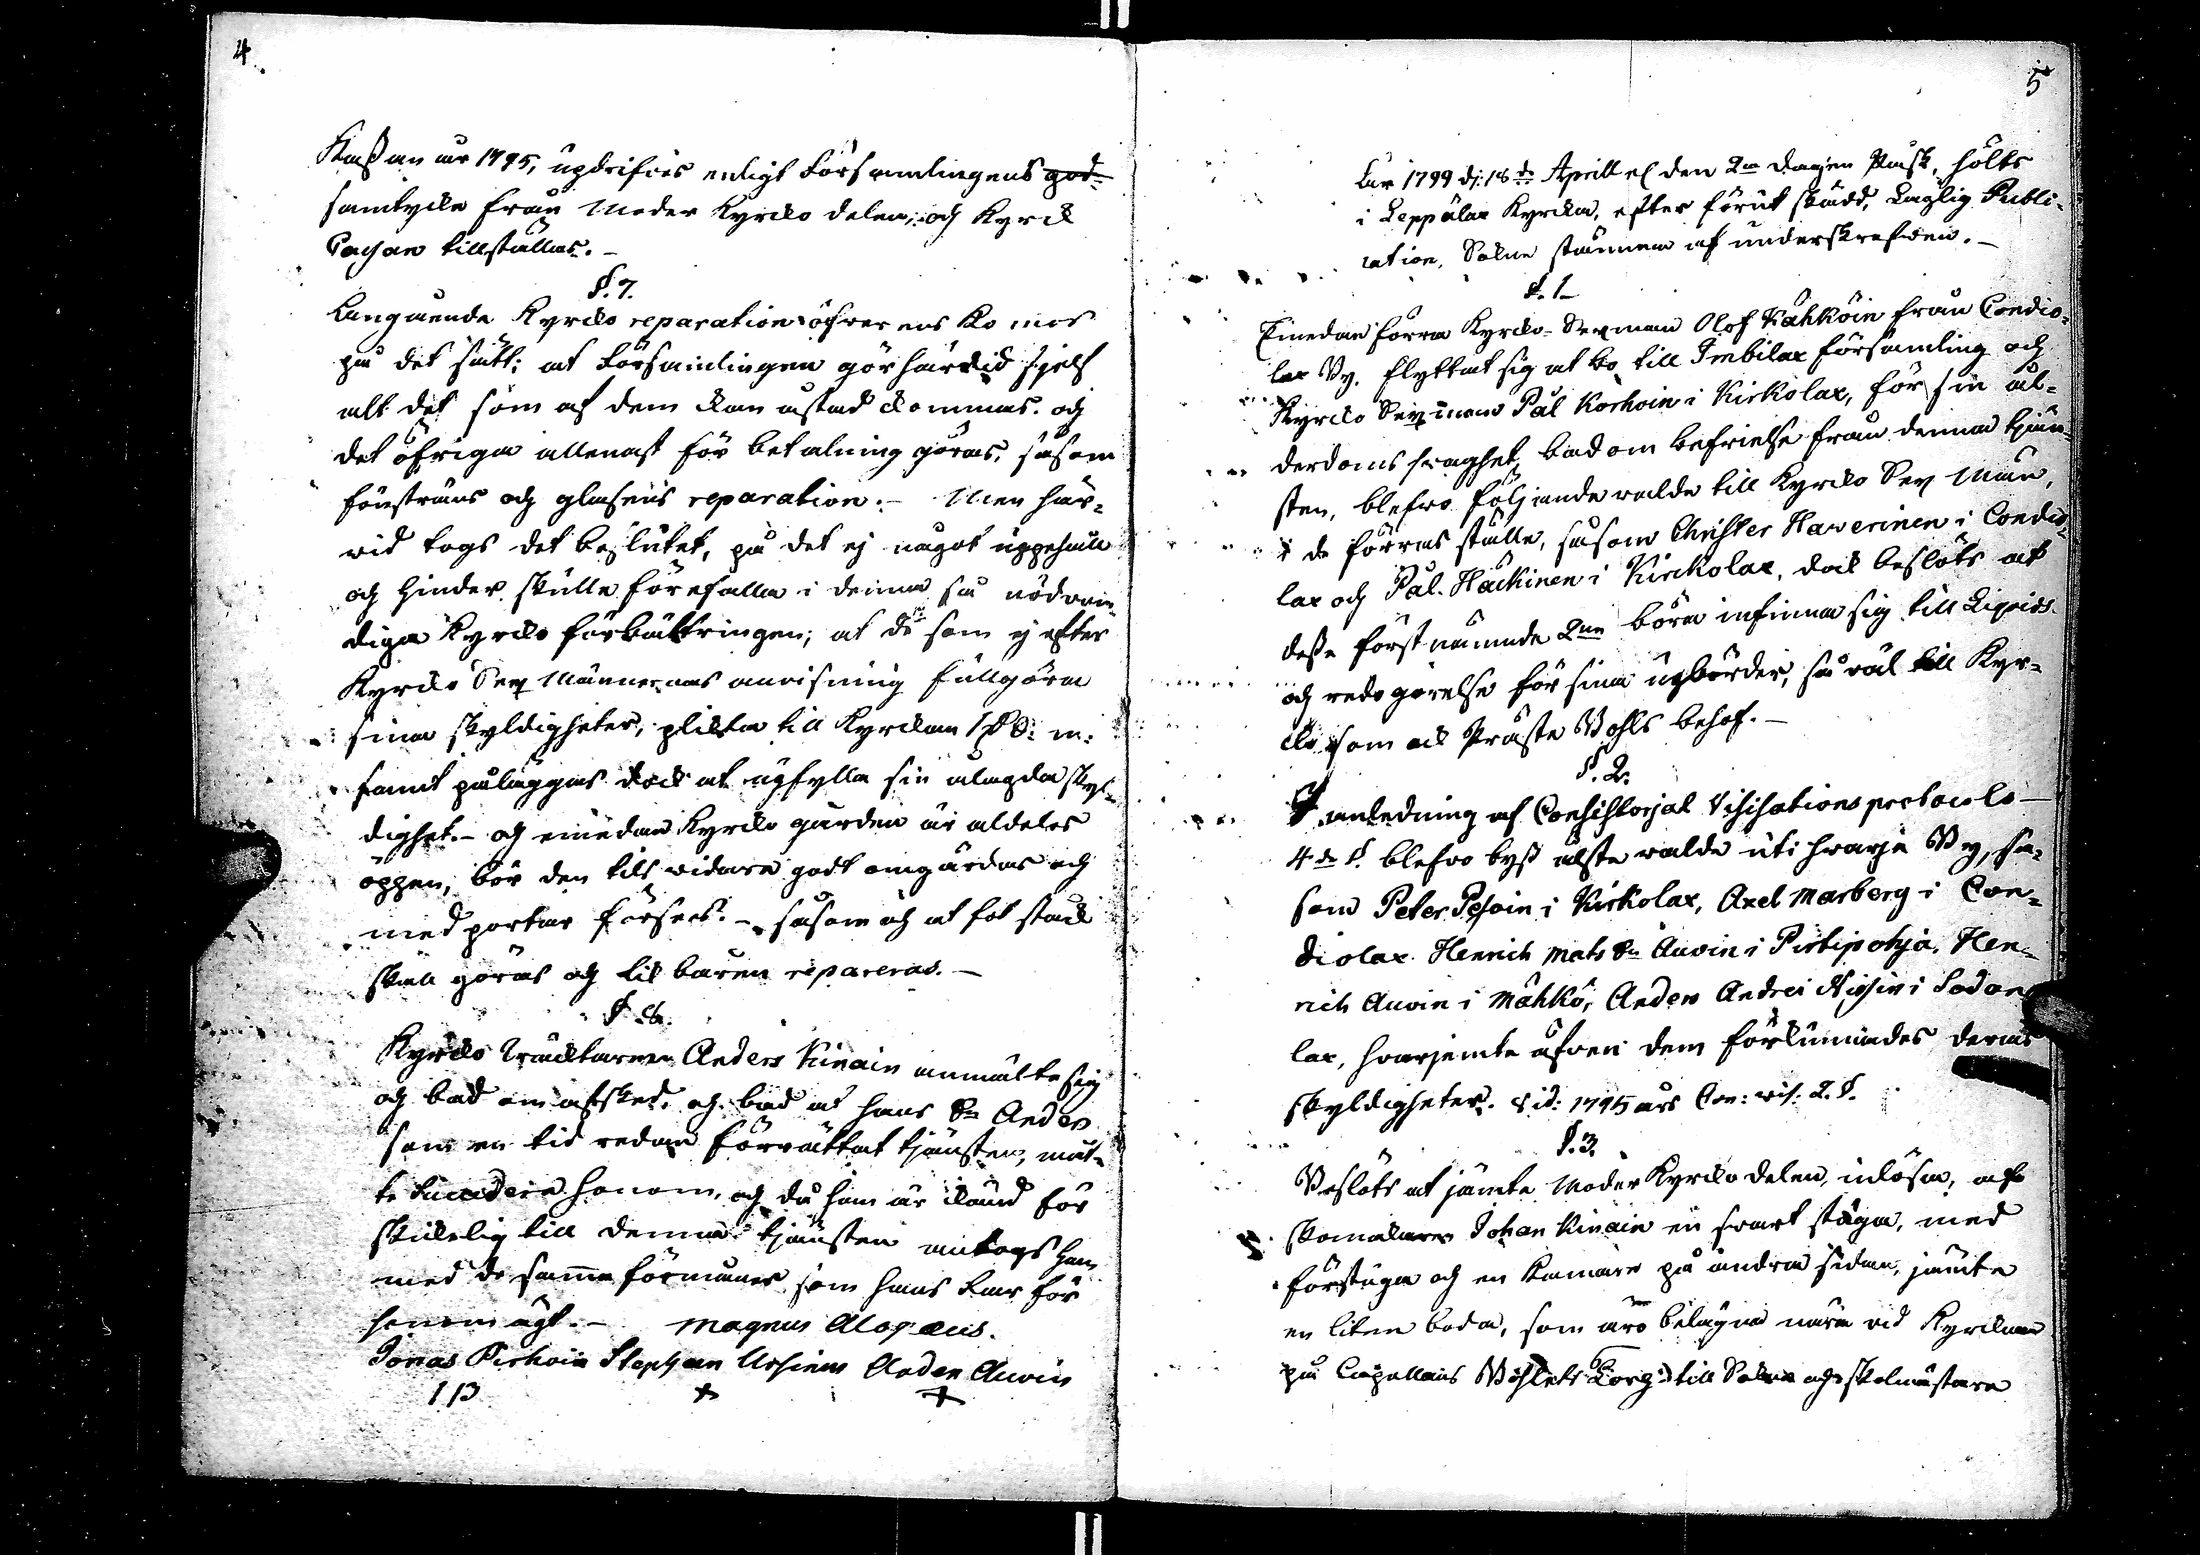 4
Kassan år 1795, updrifves enligt Församlingens god-
samtycke från Moder Kyrko delen, och Kyrck
Cassan tillställas. –
§. 7.
Angående Kyrko reparation öfwer ens ko mes
på det sätt: at Församlingen gör härvid sjelf
alt det som af dem kan åstad kommas. och
det öfriga allenast för betalning göras, såsom
fönstrens och glasens reparation. – Men här-
vid togs det beslutet, på det ej något uppehåll
och hinder skulle förefalla i denna så nödvän-
diga Kyrko förbättringen, at de som ej efter
Kyrko Sex Männernas anvisning fullgöra
sina skyldigheter, plikta till Kyrckan
samt påläggas dock at upfylla sin ålagda skyl-
dighet. – och emedan Kyrko gården är aldeles
öppen, bör den tills vidare godt omgärdas och
med portar förses. – såsom och at fot stock
skall göras och Lik båren repareras. –
§ 8.
Kyrko Väcktaren Anders Kinain anmälte sig
och bad om afsked, och bad at hans Sn Anders
som en tid redan förrättat tjänsten, måt-
te succedera honom, och då han är känd för
skickelig till denna tjänsten antogs han
med de samma förmåner som hans Far för
honom ägt. – Magnus Alopæus.
Jonas Pirhoin Stephan Ursinus Anders Auvin
1 P + +
5
År 1799 d: 18de Aprill el den 2a dagen Påsk, hölts
i Leppälax Kyrcka, efter förut skedd, Laglig Publi-
cation, Sokne stämma af underskrefven. –
§. 1
Emedan förra Kyrko-Sexman Olof Kähköin från Condio-
lax By. flyttat sig at bo till Imbilax församling och
Kyrko Sexman Pål Korhoin i Kirkolax, för sin ål-
derdoms svaghet bad om befrielse från denna tjän-
sten, blefvo följande valde till Kyrko Sex Män,
i de förras ställe, såsom Christer Haverinen i Condio-
lax och Pål. Häckinen i Kirckolax, dock beslöts at
desse först nämnde 2ne böra infinna sig till Liqvids
och redo görelse för sina upbörder, så väl till Kyr-
ko som ock Präste Bohls behof. –
§. 2.
I anledning af Consistorjal Visitations protocols
4de §. blefvo byß älste valde uti hvarje By, så-
som Peter Pesoin i Kirkolax, Axel Marberg i Con-
diolax Henrich Mats Sn Auvin i Pirtipohja, Hen-
rich Auvin i Mähkö, Anders Andrei Nissin i Sodan
lax, hvarjemte äfven dem förkunnades deras
skyldigheter. vid: 1795 års Con: vis: 2. §.
§. 3.
Beslöts at jämte Moder Kyrko delen, inlösa, af
skomakaren Johan Kinain en svart stuga, med
förstuga och en Kamare på andra sidan, jämte
en liten boda, som äro belägna nära vid Kyrckan
på Capellans Bohlets Torg till Sokne och skolmästare